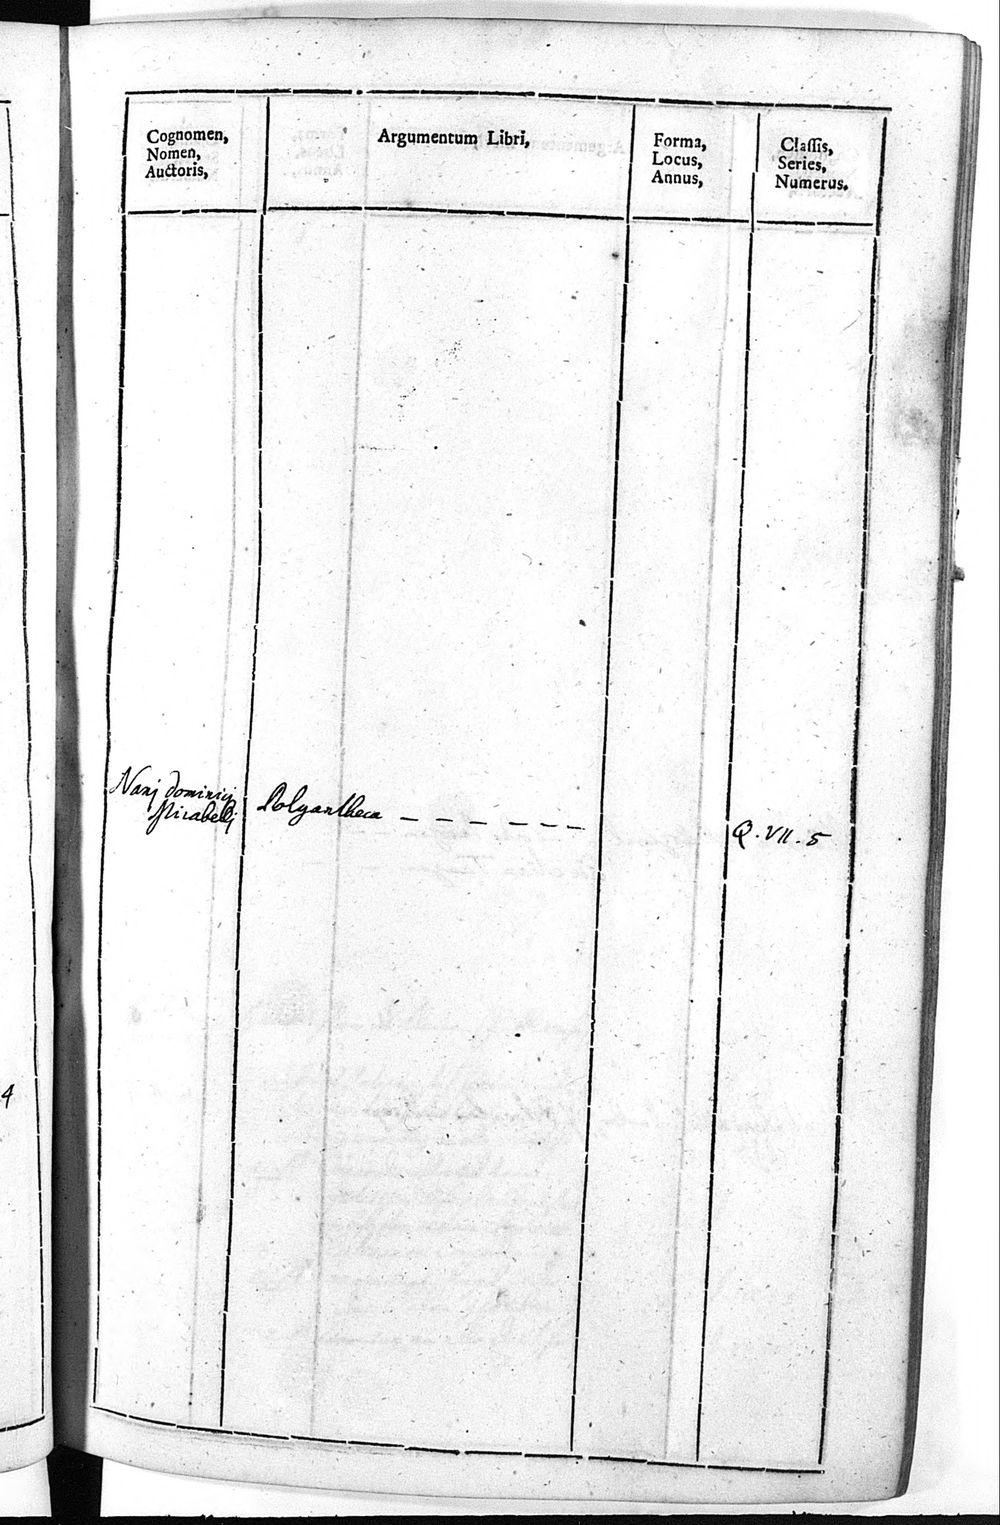 Cognomen,
Nomen,
Auctoris,
Argumentum Libri,
Forma,
Locus,
Annus,
Classis,
Series,
Numerus.
Nanj Dominicj
Mirabellj
Polyanthea - - - - - -
Q. VII. 5
4